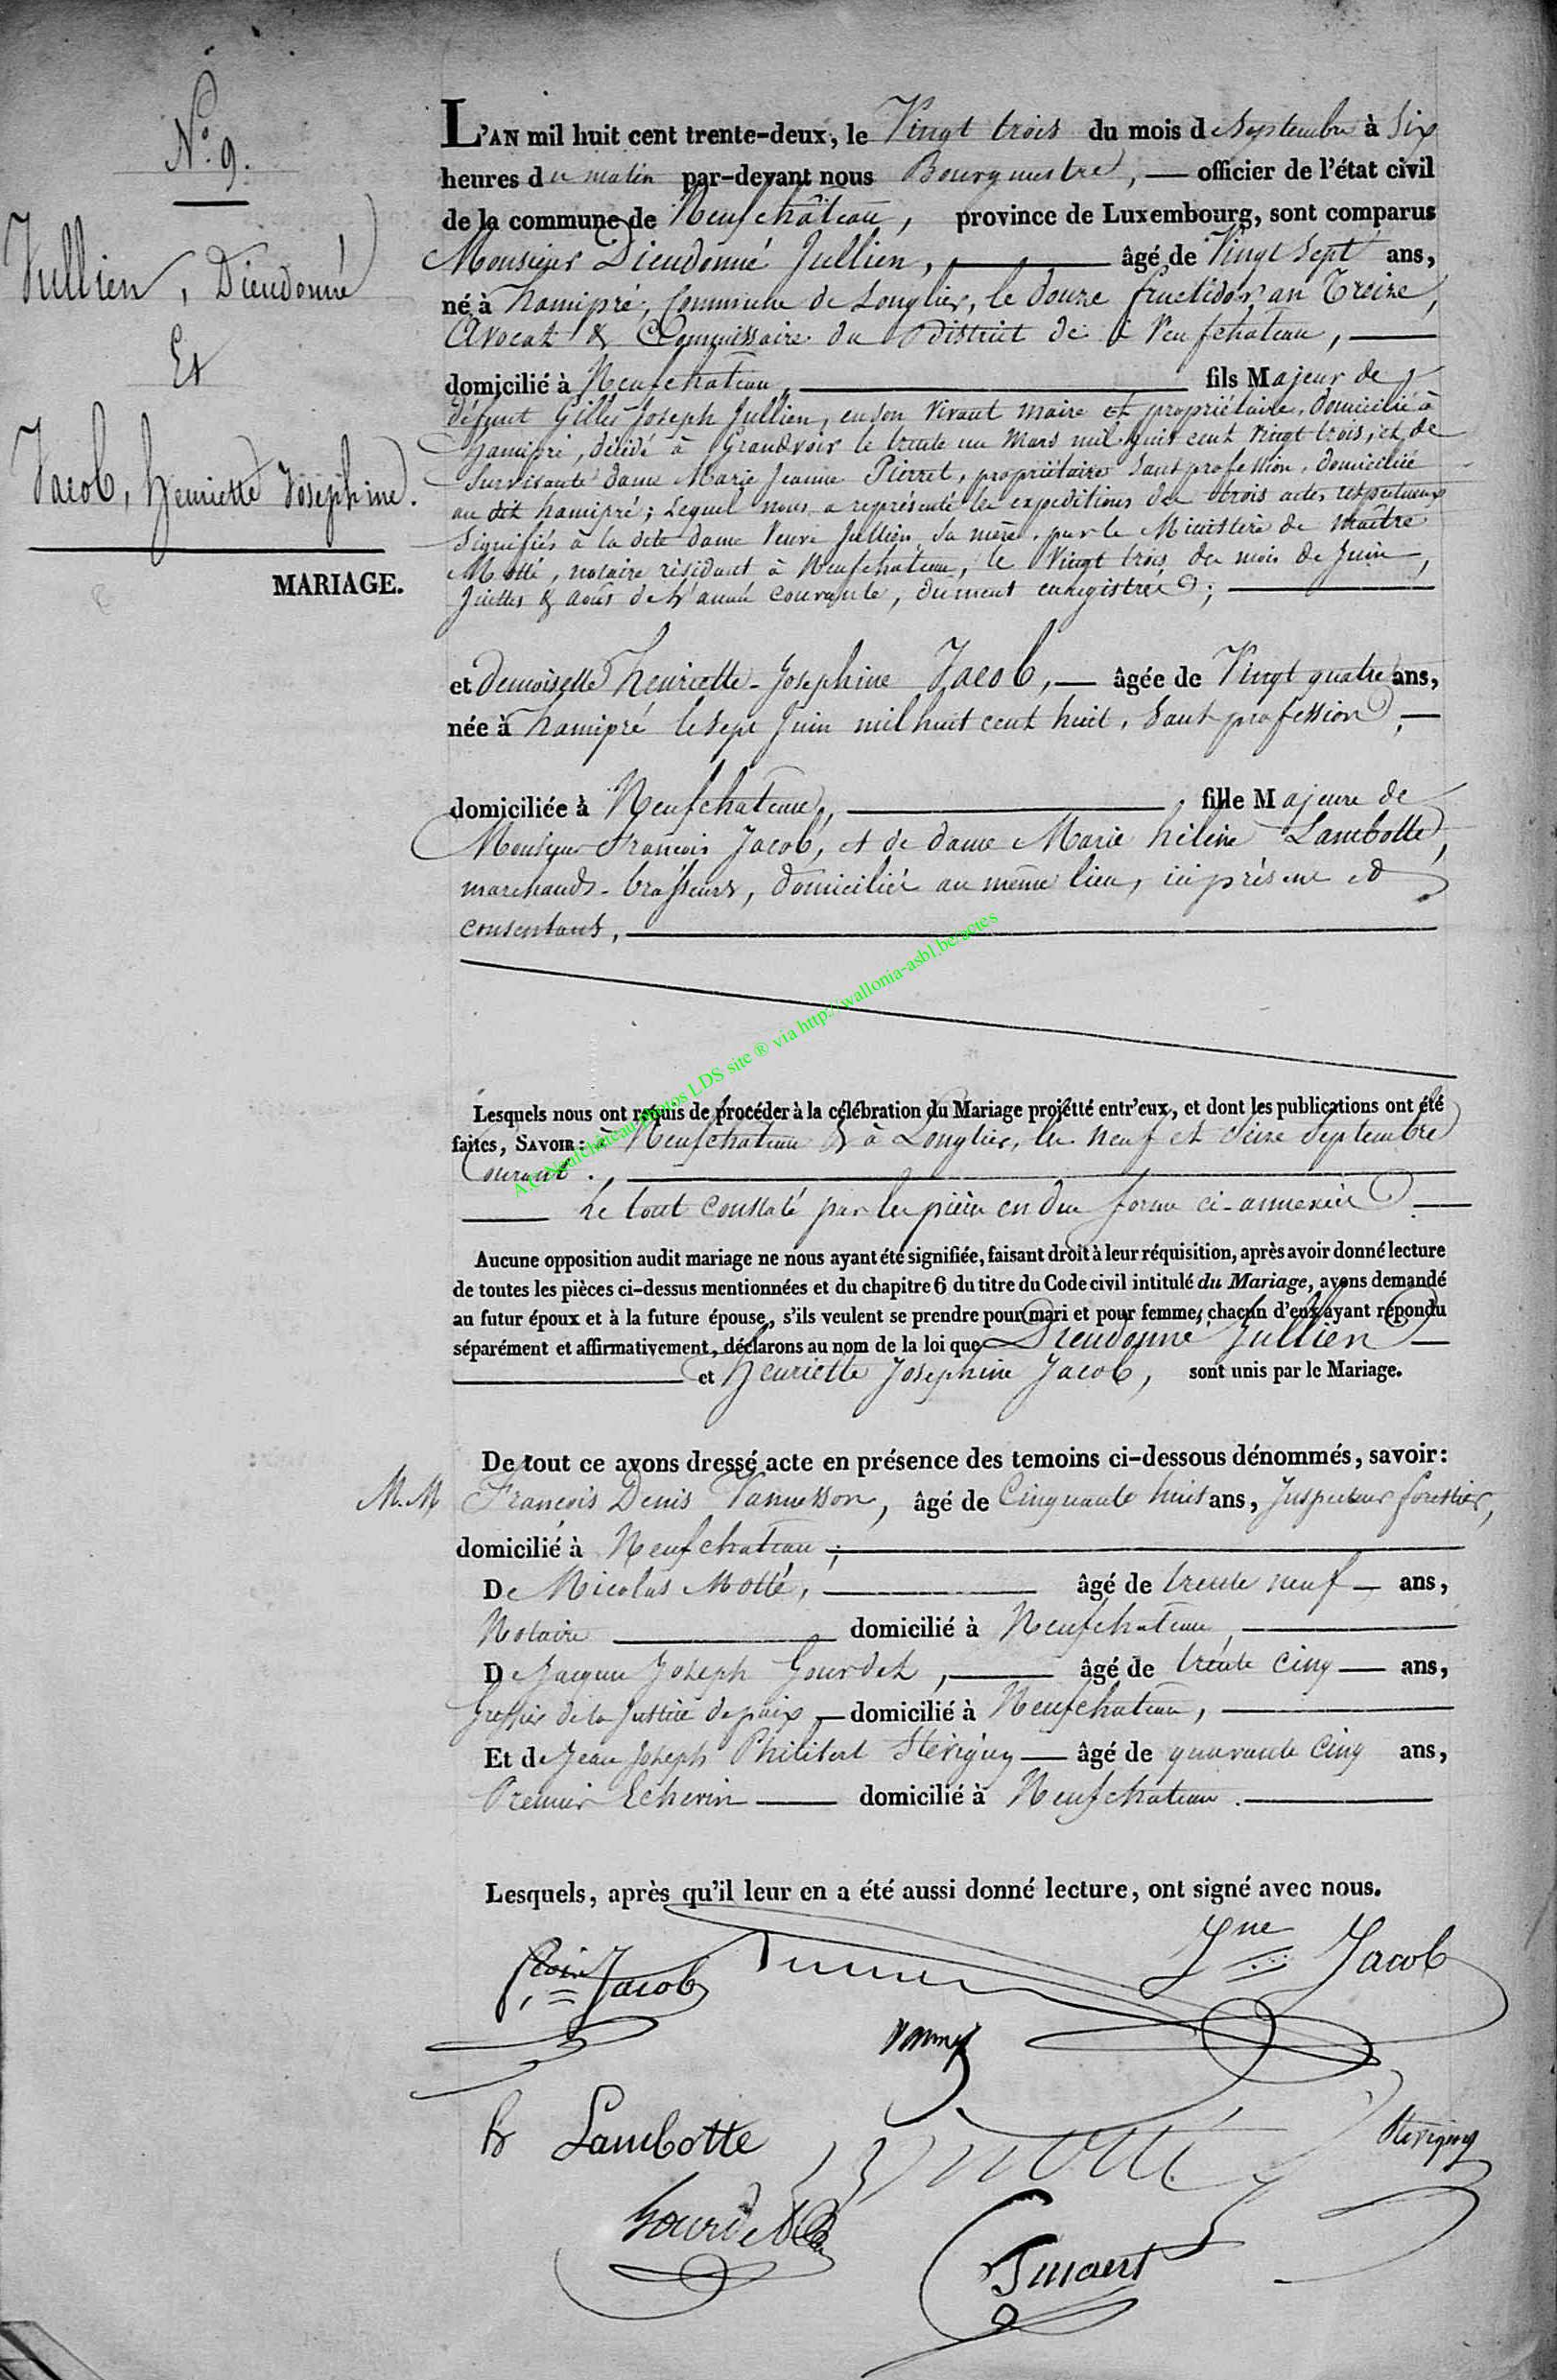 N.o 9.
Jullien, Dieudonné
Et
Jacob, henriette Josephine.
MARIAGE.
L'AN mil huit cent trente-deux, le Vingt trois du mois de septembre à Six
heures du matin par-devant nous Bourguestre, — officier de l'état civil
de la commune de Neufchâteau, province de Luxembourg, sont comparus
Monsieur Dieudonné Jullien, âgé de Vingt Sept ans,
né à hamipré, Commune de Longlier, le douze fructidor an Treize,
Avocat & Commissaire du District de Neufchateau, —
domicilié à Neufchateau, fils Majeur de
défunt Gilles Joseph Jullien, en son vivant maire et propriétaire, domicilié à
hamipré, décédé à Grandvoir le trente un Mars mil huit cent vingt trois, et de
Survivante dame Marie Jeanne Pierret, propriétaire Sans profession, domiciliée
au dit hamipré; Lequel nous a représenté les expeditions des trois actes respectueux
Signifiés à la dite dame Veuve Jullien, sa mère, par le Ministère de Maître
Motté, notaire résidant à Neufchateau, le Vingt trois du mois de Juin,
Juillet & Août de l'année courante, dument enregistrés; —
et Demoiselle henriette-Josephine Jacob, — âgée de Vingt quatre ans,
née à hamipré le sept Juin mil huit cent huit, Sans profession, —
domiciliée à Neufchateau, fille Majeure de
Monsieur François Jacob, et de dame Marie hélène Lambotte,
marchands-brasseurs, domiciliés au même lieu, ici présens et
consentans, —
Lesquels nous ont requis de procéder à la célébration du Mariage projetté entr'eux, et dont les publications ont été
faites, SAVOIR: à Neufchateau & à Longlier, les neuf et Seize Septembre
Courant. —
Le tout constaté par les pièces en due forme ci-annexées —
Aucune opposition audit mariage ne nous ayant été signifiée, faisant droit à leur réquisition, après avoir donné lecture
de toutes les pièces ci-dessus mentionnées et du chapitre 6 du titre du Code civil intitulé du Mariage, avons demandé
au futur époux et à la future épouse, s'ils veulent se prendre pour mari et pour femme, chacun d'eux ayant répondu
séparément et affirmativement, déclarons au nom de la loi que Dieudonné Jullien —
et henriette Josephine Jacob, sont unis par le Mariage.
De tout ce avons dressé acte en présence des temoins ci-dessous dénommés, savoir:
M.M François Denis Vannesson, âgé de Cinquante huit ans, Inspecteur forestier,
domicilié à Neufchateau; —
De Nicolas Motté, âgé de trente neuf — ans,
Notaire domicilié à Neufchateau, —
De Jacques Joseph Gourdet, — âgé de trente cinq — ans,
Greffier de la Justice de paix, — domicilié à Neufchateau, —
Et de Jean Joseph Philibert Stévigny — âgé de quarante cinq ans,
Premier Echevin — domicilié à Neufchateau. —
Lesquels, après qu'il leur en a été aussi donné lecture, ont signé avec nous.
fçois Jacob
Jne Jacob
h Lambotte
Motté
Stévigny
Gourdet
A.C Neufchâteau photos LDS site ® via http://wallonia-asbl.be/actes